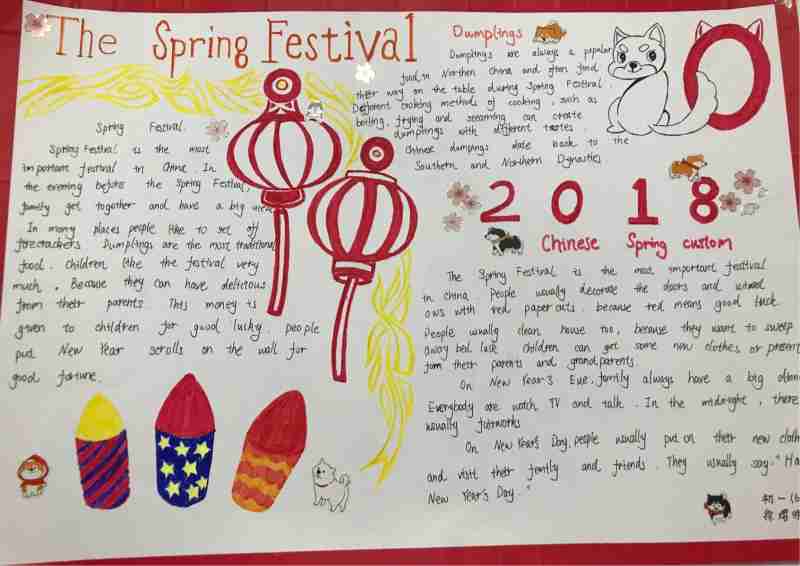 The Spring Festival
Spring Festival.
Spring Festival is the most
important festival in China. In
the evening before the Spring Festival,
family get together and have a big
In many places people like to set off
firecrackers. Dumplings are the most traditional
food. Children like the festival very
much, Because they can have delicious
from their parents. This money is
given to children for good lucky. people
put New Year scrolls on the wall for
good fortune.
Dumplings
Dumplings are always a popular
food in Northen China and often food
their way on the table during Spring Festival.
Different cooking methods of cooking, such as
boiling, frying and steaming can create
dumplings with different tastes.
Chinese dumplings date back to the
Southern and Northern Dynasties
2018
Chinese Spring custom
The Spring Festival is the most important festival
in China. People usually decorate the doors and wind
ows with red paper cuts. because red means good luck.
People usually clean house too, because they want to sweep
away bad luck. Children can get some new clothes or present
from their parents and grandparents.
On New Year's Eve, family always have a big dinn
Everybody are watch TV and talk. In the midnight, there
usually fireworks
On New Year's Day, people usually put on their new cloth
and visit their family and friends. They usually say:" Ha
New Year's Day."
初一